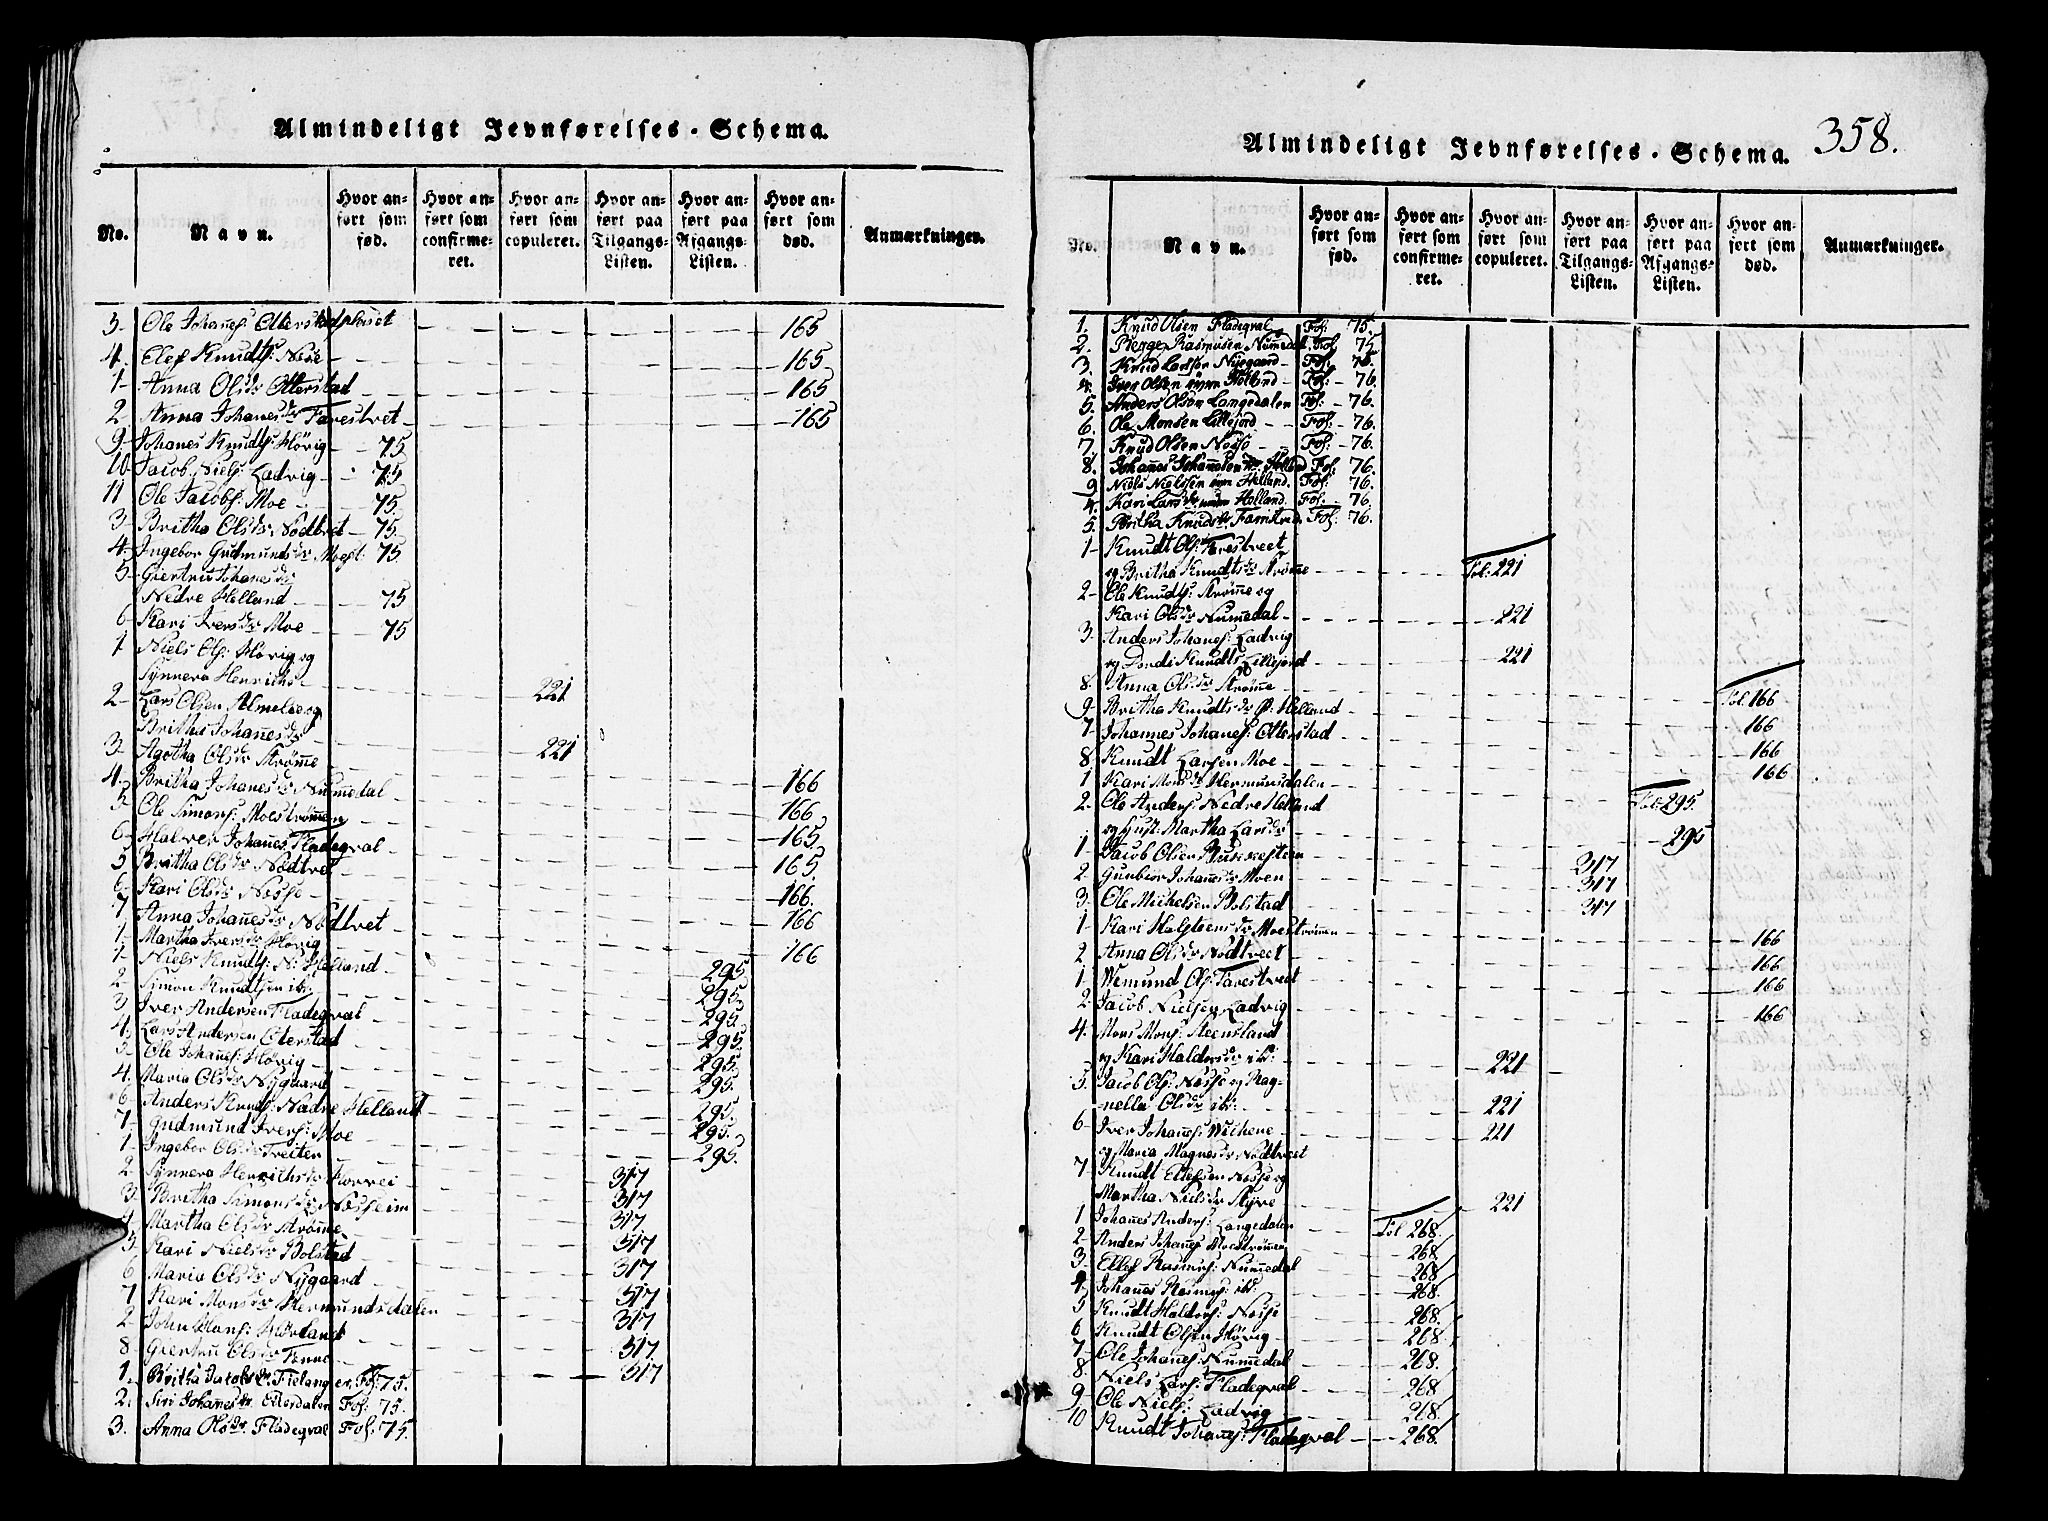 Almindeligt Jevnførelses-Schema.
No. Navn. Hvor anført som fød. Hvor anført som confirmeret. Hvor anført som copuleret. Hvor anført paa Tilgangs-Listen. Hvor anført paa Afgangs-Listen. Hvor anført som død. Anmærkninger.
3- Ole Johanes: Otterstadpladset 165
4. Elef Knudts: 165
1- Anna Olsdr Otterstad 165
2 Anna Johanesdr Farestvet 165
9 Johanes Knudts: Hörvig 75
10 Jacob Niels: Ladvig 75
11 Ole Jacobs: Moe 75.
3- Britha Olsdr Nödtvet 75.
4- Ingebor Gudmundsdr Moest: 75.
5- Giertru Johanesdr
Nedre Helland 75
6 Kari Iversdr Moe 75
1 Niels Ols: Hörvig og
Synnera Henrichs 221
2- Lars Olsen Almelie og
Britha Johanesdr 221
3- Agotha Olsdr Strömme 166
4. Britha Johanesdr Nummedal 166
5 Ole Simons: Moeströmmen 165.
6- Halver Johanes: Fladeqval 165.
5 Britha Olsdr Nödtvet 166.
6- Kari Olsdr Nesse 166
7 Anna Johanesdr Nödtvet 166
1- Martha Iversdr Hörvig 295
1- Niels Knudts: N: Helland 295
2 Simon Knudtsen ib: 295.
3 Iver Andersen Fladeqval 295.
4. Lars Andersen Otterstad 295.
5 Ole Johanes: Hörvig 295.
4 Maria Olsdr Nygaard 295.
6- Anders Knuds: Nedre Helland 295.
7 Gudmund Ivers: Moe 295.
1- Ingebor Olsdr Treiter 317
2 Synnera Henrichsdr Horvei 317
3. Britha Simonsdr Nesheim 317
4 Martha Olsdr Strömme 317
5- Kari Nielsdr Bolstad 317
6 Maria Olsdr Nygaard 317
7 Kari Monsdr Hermundsdalen 317
2- John Hans: Hovland 317.
8 Giertru Olsdr Tenne 317
1. Britha Jacobsdr Fielanger Fol: 75.
2. Siri Johanesdr Otterdalen Fol: 75.
3. Anna Olsdr Fladeqval Fol: 75.
Almindeligt Jevnførelses-Schema. 358.
No. Navn. Hvor anført som fød. Hvor anført som confirmeret. Hvor anført som copuleret. Hvor anført paa Tilgangs-Listen. Hvor anført paa Afgangs-Listen. Hvor anført som død. Anmærkninger.
1. Knud Olsen Fladeqval Fol: 75.
2. Rasmusen Nummedal Fol. 75
3. Knud Larssen Nygaard Fol: 76.
4. Iver Olsen Helland Fol: 76.
5. Anders Olsen Langedalen Fol: 76.
6. Ole Monsen Lillejord Fol: 76.
7. Knud Olsen Nesse Fol: 76.
8. Johannes Johannesen Helland Fol: 76.
9 Niels Nielssen Helland. Fol: 76.
4. Kari Larsdr Helland Fol: 76
5. Britha Knudsdr Farestved Fol: 76.
1- Knudt Ols: Farestveet
og Britha Knudtsdr Strömme Fol: 221
2- Ole Knudts: Strömme og
Kari Olsdr Nummedal 221
3. Anders Johanes: Ladvig
og Dordi Knudts Lillejord 221
8. Anna Olsdr Strömme Fol. 166
9- Britha Knudtsdr Ø: Helland 166
7- Johannes Johanes: Otterstad 166
8. Knudt Larsen Moe 166
1 Kari Monsdr Hermunsdalen Fol: 295
2. Ole Anders: Nedre Helland
og Hust: Martha Larsdr 295
1 Jacob Olsen Bukkesteen 317
2- Gunbior Johanesdr Moen 317
3. Ole Michelsen Bolstad 317
1- Kari Holsteensdr Moeströmmen 166
2 Anna Olsdr Nödtveet 166
1- Wemund Ols: Farestveet 166
2. Jacob Nielsen Ladvig 166
4. Mons Mons: Steensland
og Kari Haldorsdr ib: 221
5. Jacob Ols: Nesse og Rag-
-nella Olsdr ib: 221
6- Iver Johanes: Wichene 221
og Maria Magnesdr Nödtveet
7. Knudt Ellefsen Nesse og
Martha Nielsdr Styve 221
1 Johanes Anders: Langedalen Fol 268.
2- Anders Johanes Moeströmmen 268.
3- Ellef Rasmus: Nummedal 268
4. Johanes Rasmus: ib: 268.
5 Knudt Haldors: Nesse 268.
6 Knudt Olsen Hörvig 268.
7- Ole Johanes: Nummedal 268.
8. Niels Lars: Fladeqval 268.
9- Ole Niels: Ladvig 268.
10 Knudt Johanes: Fladeqval 268.